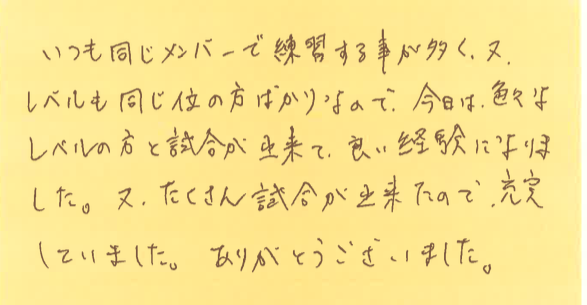 いつも同じメンバーで練習する事が多く、又、
レベルも同じ位の方ばかりなので、今日は、色々な
レベルの方と試合が出来て、良い経験になりま
した。又、たくさん試合が出来たので、充実
していました。ありがとうございました。